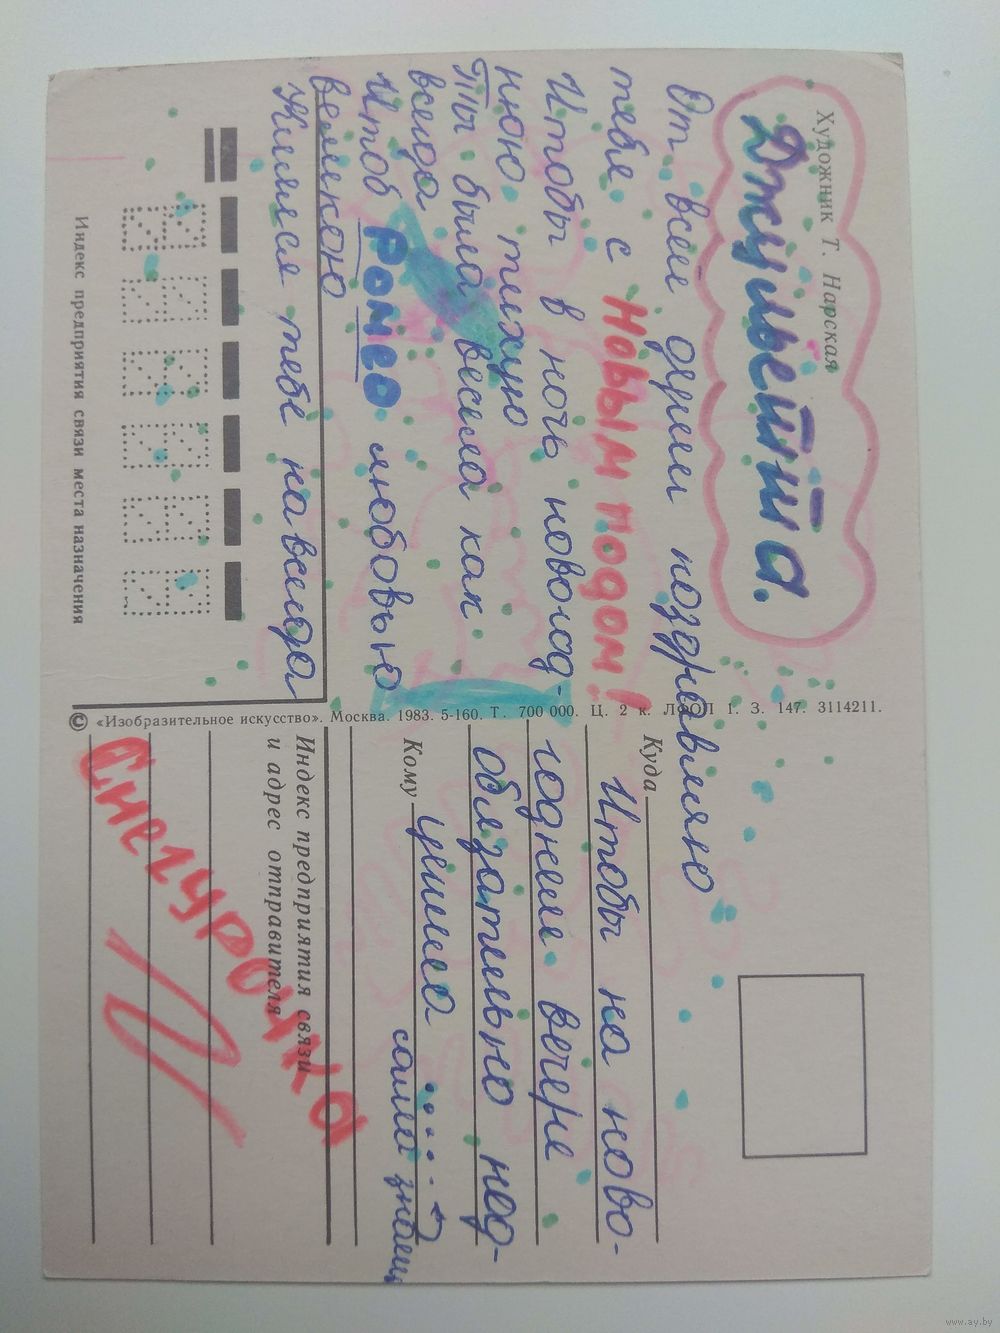 Художник Т. Нарская
Джульетта.
От всей души поздравляю
тебя с Новым годом!
Чтобы в ночь новогод-
нюю тихую
Ты была весела как
всегда
И чтоб Ромео любовью
великою
Клялся тебе навсегда
Индекс предприятия связи места назначения
© «Изобразительное искусство». Москва. 1983. 5-160. Т. 700 000. Ц. 2 к. ЛФОП 1. З. 147. 3114211.
Куда
Чтобы на ново-
годнем вечере
обязательно над-
Кому
сами знаем
Индекс предприятия связи
и адрес отправителя
Снегурочка
www.ay.by